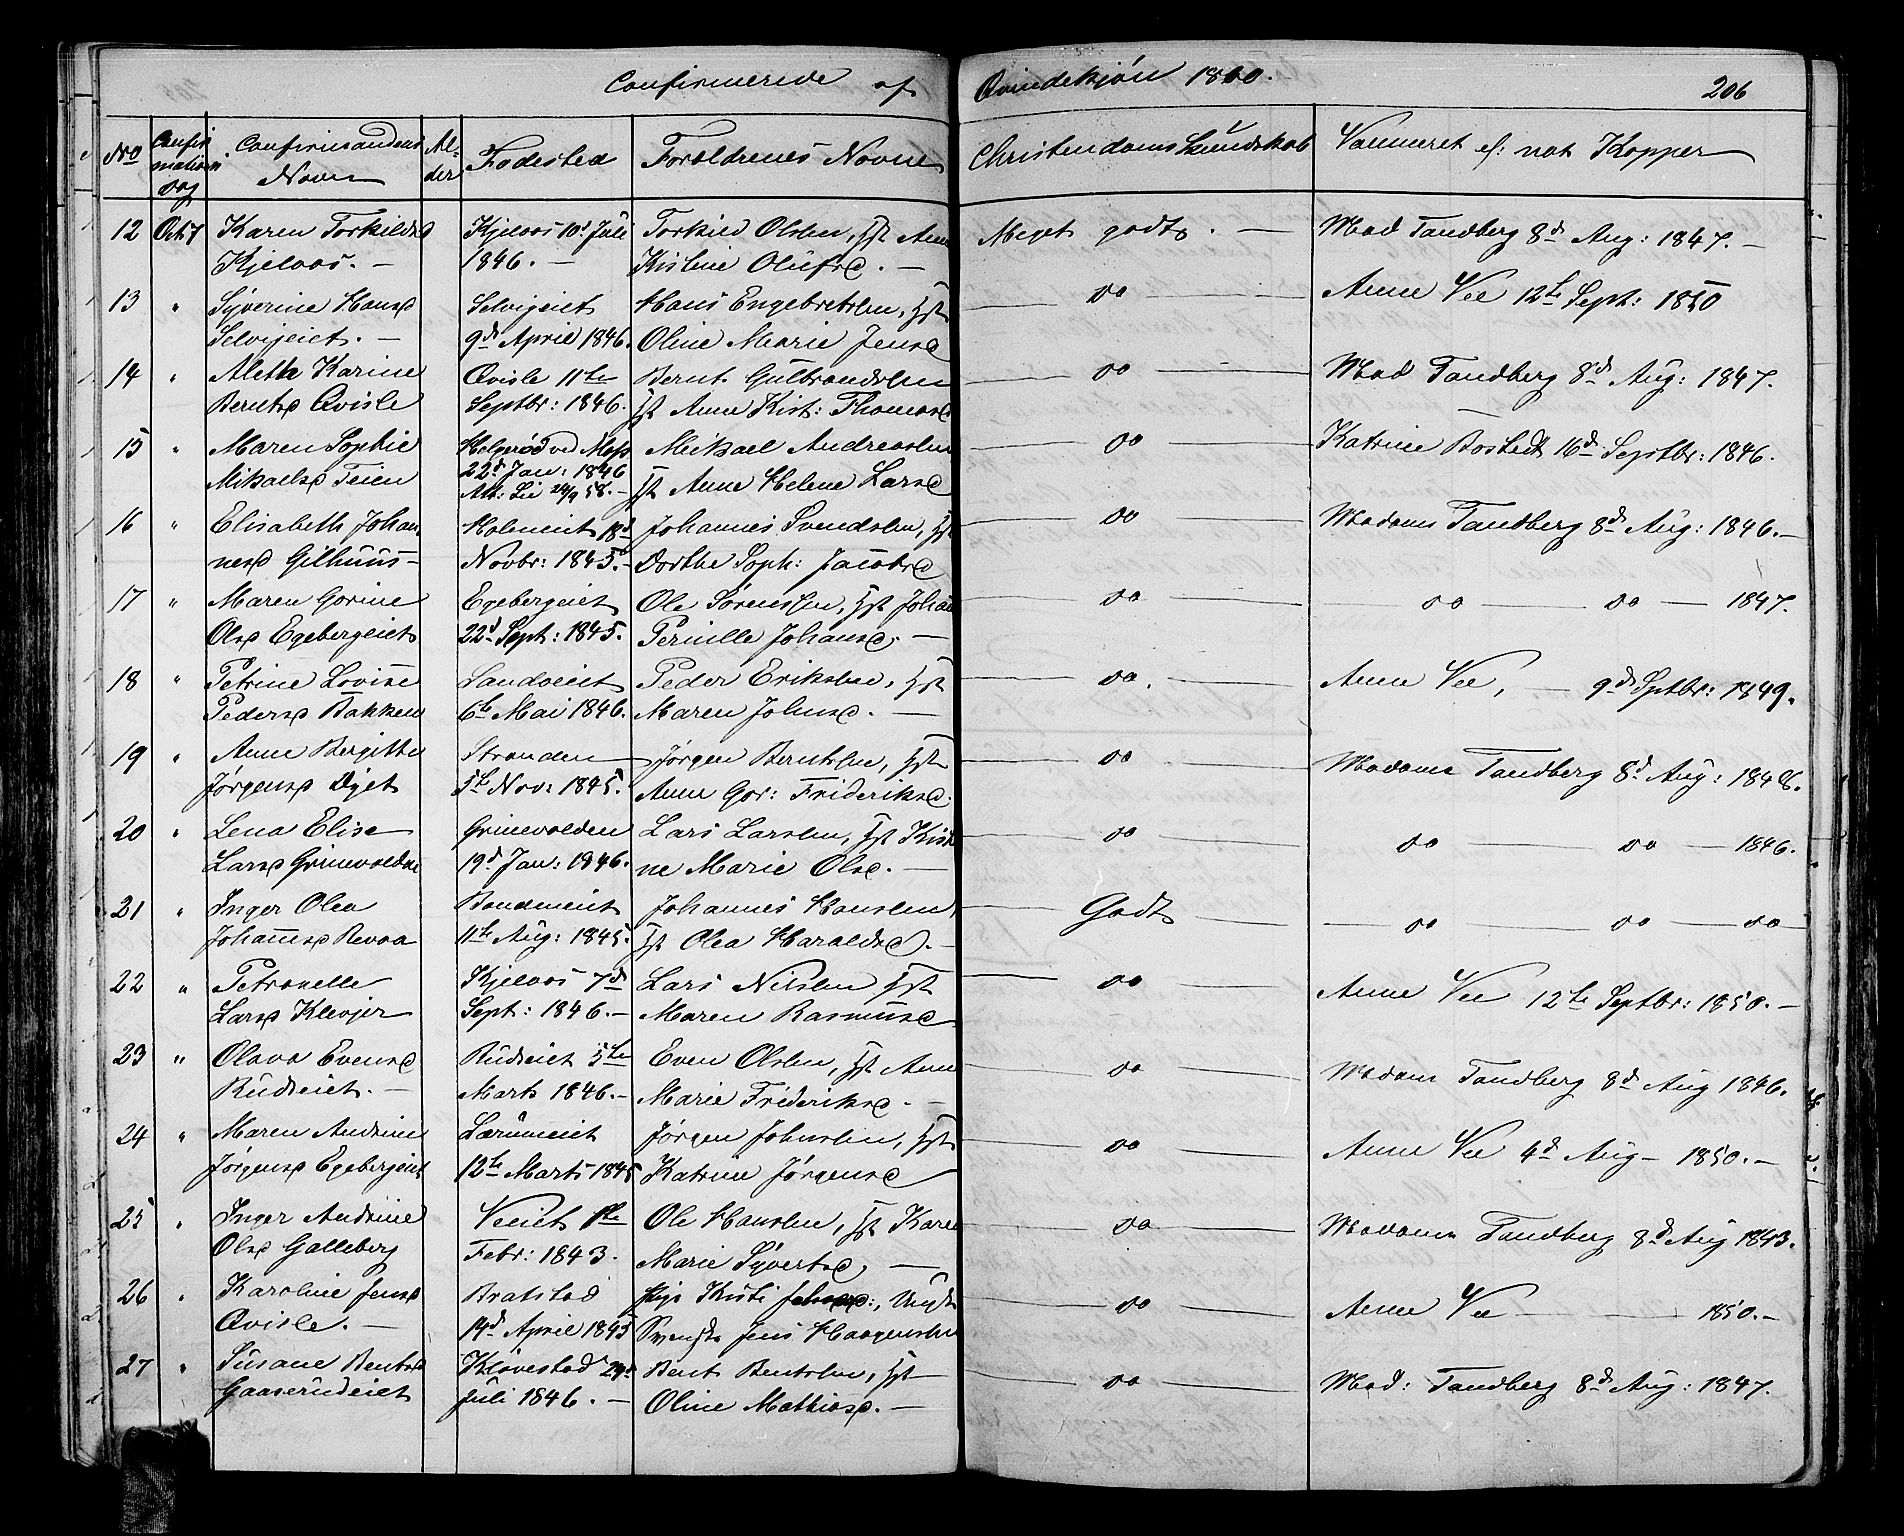 Confirmerede af Qvindekjøn 1860. 206
No Confir mations dag Confirmandens Navn Al- der Fødested Forældrenes Navne Christendoms Kundskab Vaccineret ef: nat Kopper
12 Oct 7 Karen Torkildsd Kjelaas 10d Juli Torkild Olsen, Hst Anne Meget godt. — Mad Tandberg 8d Aug: 1847. —
Kjelaas. — 1846. — Kistine Olufsd. —
13 " Syverine Hansd Selvigeiet Hans Engebretsen, Hst do Anne Vee 12te Sept: 1850
Selvigeiet. — 9d April 1846. Oline Marie Jensd
14 " Alette Karine Qvisle 11te Bernt Gulbrandsen do Mad Tandberg 8d Aug: 1847.
Berntsd Qvisle Septbr: 1846. Hst Anne Kist: Thomasd
15 " Maren Sophie Helgerød ved Moss Mikael Andreasen do Katrine Bostedt 16d Septbr: 1846.
Mikaelsd Teien 22d Jan: 1846 Hst Anne Helene Larsd
Att: Lie 24/9 58. —
16 " Elisabeth Johan Holmeiet 18d Johannes Svendsen, Hst do Madame Tandberg 8d Aug: 1846. —
nesd Gilhuus — Novbr: 1845. — Dorthe Soph: Jacobsd
17 " Maren Gorine Egebergeiet Ole Sørensen, Hst Johan do — do — do — 1847.
Olsd Egebergeiet 22d Sept: 1845. Pernille Johansd. —
18 " Petrine Lovise Sandveiet Peder Eriksen, Hst do. Anne Vee, — 9d Sptbr: 1849.
Pedersd Bakken 6te Mai 1846. Maren Johnsd. —
19 " Anne Bergitte Stranden Jørgen Berntsen, Hst do Madame Tandberg 8d Aug: 1846.
Jørgensd Dyet 5te Nov: 1845. Anne Gor: Frideriksd.
20 " Lena Elise Grinevolden Lars Larsen, Hst Kisti do do do — 1846.
Larsd Grinevolden 19d Jan: 1846. ne Marie Olsd. —
21 " Inger Olea Johannes Hansen, Godt — do — do — do
Johannesd Revaa 11te Aug: 1845. Hst Olea Haraldsd. —
22 " Petronelle Kjelaas 7d Lars Nilsen Hst do Anne Vee 12te Septbr: 1850. —
Larsd Klevjer Sept: 1846. — Maren Rasmusd
23 " Olava Evensd Rudseiet 5te Even Olsen, Hst Anne do Madame Tandberg 8d Aug 1846.
Rudseiet. — Marts 1846. — Marie Frideriksd. —
24 " Maren Andrine Lærumeiet Jørgen Johnsen, Hst do Anne Vee 4d Aug — 1850. —
Jørgensd Egebergeiet 12te Marts 1845 Katrine Jørgensd
25 " Inger Andrine Veeiet 1te Ole Hansen, Hst Karen do Madame Tandberg 8d Aug 1843.
Olsd Galleberg Febr: 1843. Marie Syvertsd. —
26 " Karoline Jensd Bratstad Pige Kisti, Ungk do Anne Vee — 1850. —
Qvisle. — 14d April 1845 Svensk Jens Haagensen
27 " Susane Bentsd Kløvestad 29d Bent Bentsen, Hst do Mad: Tandberg 8d Aug: 1847.
Gaaserudeiet Juli 1846. — Oline Mathiasd. —